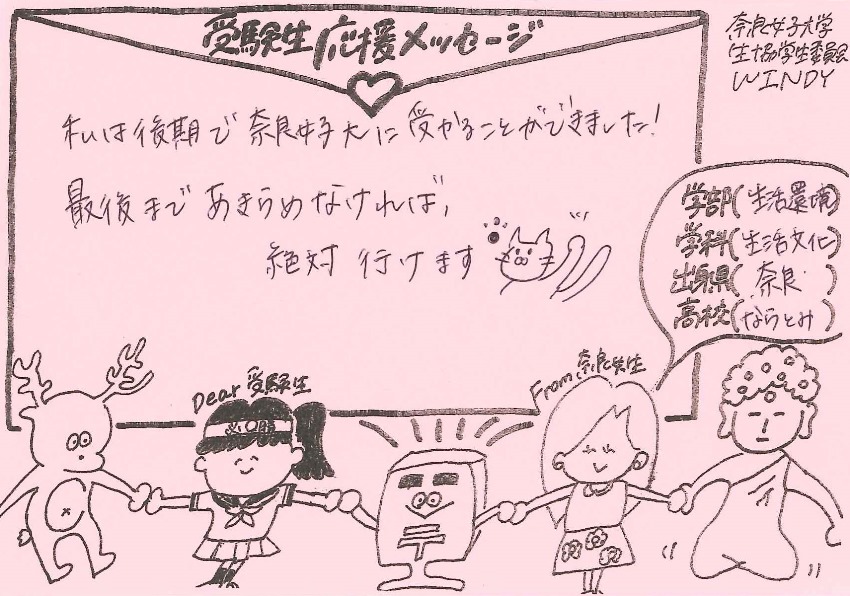 受験生応援メッセージ
奈良女子大学
生協学生委員会
WINDY
私は後期で奈良女子大に受かることができました!
最後まであきらめなければ、
絶対行けます
学部(生活環境)
学科(生活文化)
出身県(奈良)
高校(ならとみ)
Dear受験生
From奈良女生
必勝
〒